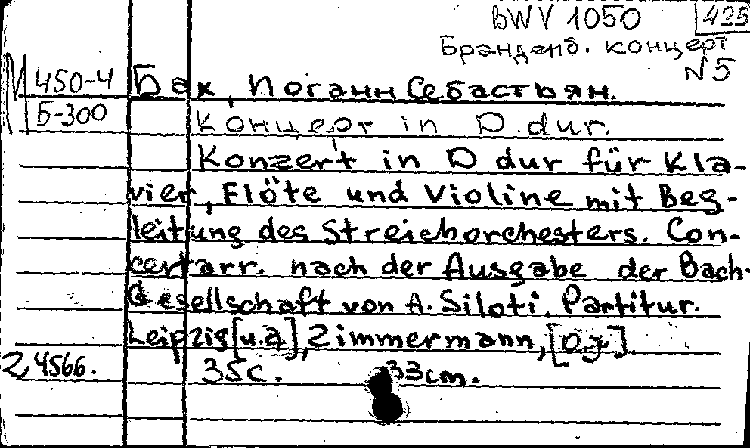 BWV 1050 425
Бранденб. концерт
N 5
И 450-4 Бах, Иоганн Себастьян.
Б-300 Концерт in D dur.
Konzert in D dur für Kla-
vier, Flöte und Violine mit Beg-
leitung des Streichorchesters. Con-
certarr. nach der Ausgabe der Bach-
Gesellschaft von A. Siloti. Partitur.
Leipzig [u.a], Zimmermann, [o.j].
24566. 35 c. 33 cm.